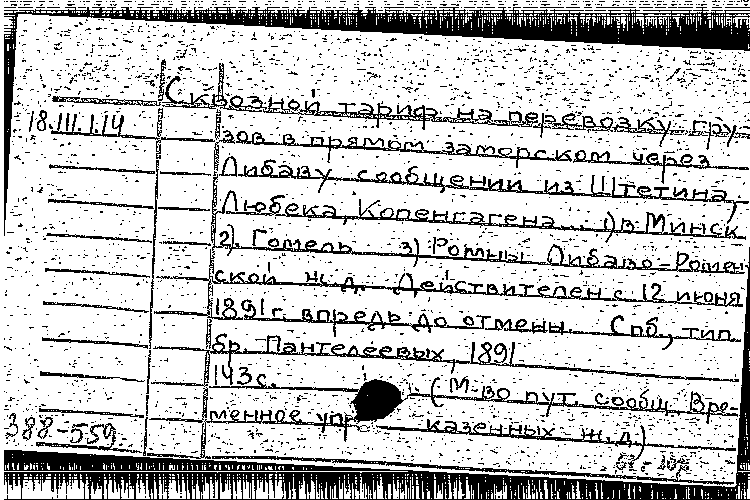 Сквозной тариф на перевозку гру-
18.III.1.14
зов в прямом заморском через
Либаву сообщении из Штетина,
Любека, Копенгагена... 1) в Минск
2). Гомель 3) Ромны Либаво-Ромен
ской ж.д. Действителен с 12 июня
1891 г. впредь до отмены Спб., тип.
бр. Пантелеевых, 1891
143 с. (М-во пут. сообщ. Вре-
менное упр казенных ж.д.)
388-559.